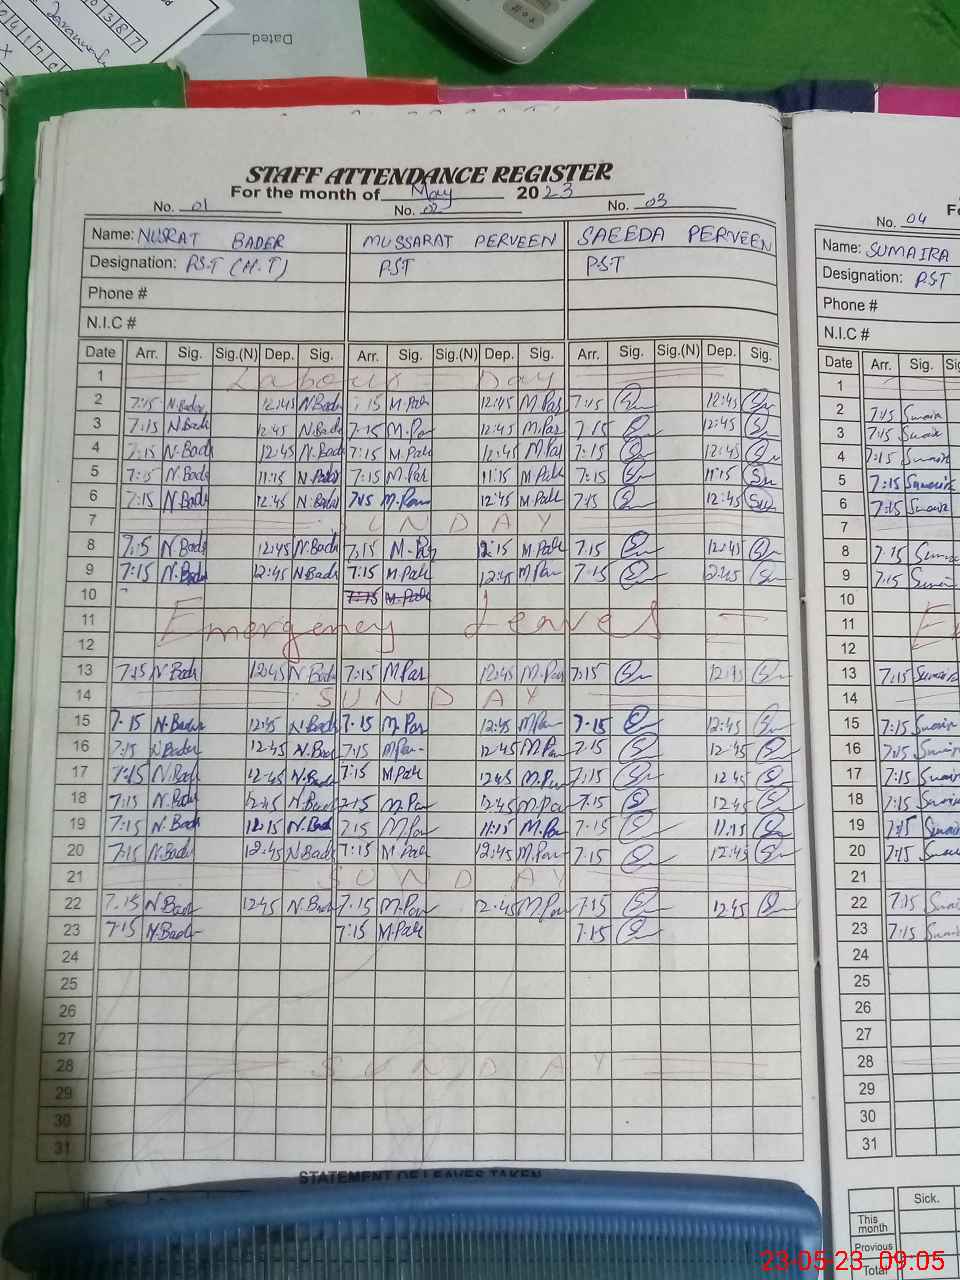 Dated
STAFF ATTENDANCE REGISTER
For the month of May 2023
No. 01 No. 02 No. 03
Name: NUSRAT BADER MUSSARAT PERVEEN SAEEDA PERVEEN
Designation: P.S.T (H.T) P.S.T P.S.T
Phone #
N.I.C #
Date Arr. Sig. Sig.(N) Dep. Sig. Arr. Sig. Sig.(N) Dep. Sig. Arr. Sig. Sig.(N) Dep. Sig.
1 Labour Day
2 7:15 N.Bader 12:45 N.Bade 7:15 M.Pale 12:45 M.Par 7:15 12:45
3 7:15 N.Bade 12:45 N.Bade 7:15 M.Par 12:45 M.Par 7:15 12:45
4 7:15 N.Bade 12:45 N.Bade 7:15 M.Pale 12:45 M.Par 7:15 12:45
5 7:15 N.Bade 11:15 N.Bader 7:15 M.Par 11:15 M.Pale 7:15 11:15
6 7:15 N.Bade 12:45 N.Bade 7:15 M.Par 12:45 M.Pale 7:15 12:45
7 SUNDAY
8 7:15 N.Bade 12:45 N.Bade 7:15 M.Par 12:15 M.Pale 7:15 12:45
9 7:15 N.Bade 12:45 N.Bade 7:15 M.Pale 12:45 M.Par 7:15 12:45
10 7:15 M.Pale
11 Emergency Leaves
12
13 7:15 N.Bade 12:45 N.Bade 7:15 M.Par 12:45 M.Par 7:15 12:45
14 SUNDAY
15 7:15 N.Bader 12:45 N.Bade 7:15 M.Par 12:45 M.Par 7:15 12:45
16 7:15 N.Bader 12:45 N.Bad 7:15 M.Par 12:45 M.Par 7:15 12:45
17 7:15 N.Bade 12:45 N.Bade 7:15 M.Pale 12:45 M.Par 7:15 12:45
18 7:15 N.Bade 12:45 N.Bade 7:15 M.Par 12:45 M.Par 7:15 12:45
19 7:15 N.Bade 11:15 N.Bad 7:15 M.Par 11:15 M.Par 7:15 11:15
20 7:15 N.Bade 12:45 N.Bade 7:15 M.Pale 12:45 M.Par 7:15 12:45
21 SUNDAY
22 7:15 N.Bade 12:45 N.Bade 7:15 M.Par 12:45 M.Par 7:15 12:45
23 7:15 N.Bade 7:15 M.Pale 7:15
24
25
26
27
28 SUNDAY
29
30
31
STATEMENT OF LEAVES TAKEN
No. 04
Name: SUMAIRA
Designation: P.ST
Phone #
N.I.C #
Date Arr. Sig.
1
2 7:15 Sumaira
3 7:15 Sumaira
4 7:15 Sumaira
5 7:15 Sumaira
6 7:15 Sumaira
7
8 7:15
9 7:15
10
11
12
13 7:15 Sumaira
14
15 7:15 Sumaira
16 7:15 Sumaira
17 7:15 Sumaira
18 7:15 Sumaira
19 7:15 Sumaira
20 7:15
21
22 7:15
23 7:15
24
25
26
27
28
29
30
31
Sick.
This month
Previous
Total
23-05-23 09:05